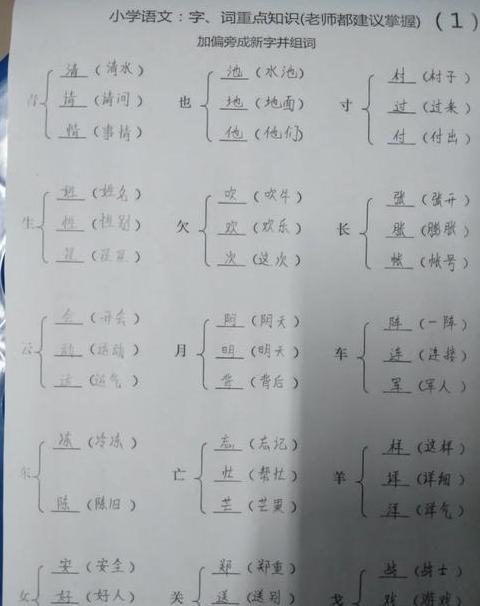 小学语文：字、词重点知识(老师都建议掌握) （1）
加偏旁成新字并组词
青 清（清水） 也 池（水池） 寸 村（村子）
请（请问） 地（地面） 过（过来）
情（事情） 他（他们） 付（付出）
生 姓（姓名） 欠 吹（吹牛） 长 张（张开）
性（性别） 欢（欢乐） 胀（膨胀）
星 次（这次） 帐（帐号）
云 会（开会） 月 阴（阴天） 车 阵（一阵）
动（运动） 明（明天） 连（连接）
运（运气） 背（背后） 军（军人）
东 冻（冷冻） 亡 忘（忘记） 羊 样（这样）
忙（帮忙） （详细）
陈（陈旧） 芒（芒果） 洋（洋气）
女 安（安全） 关 郑（郑重） 戈 战（战士）
好（好人） 送（送别） 戏（游戏）